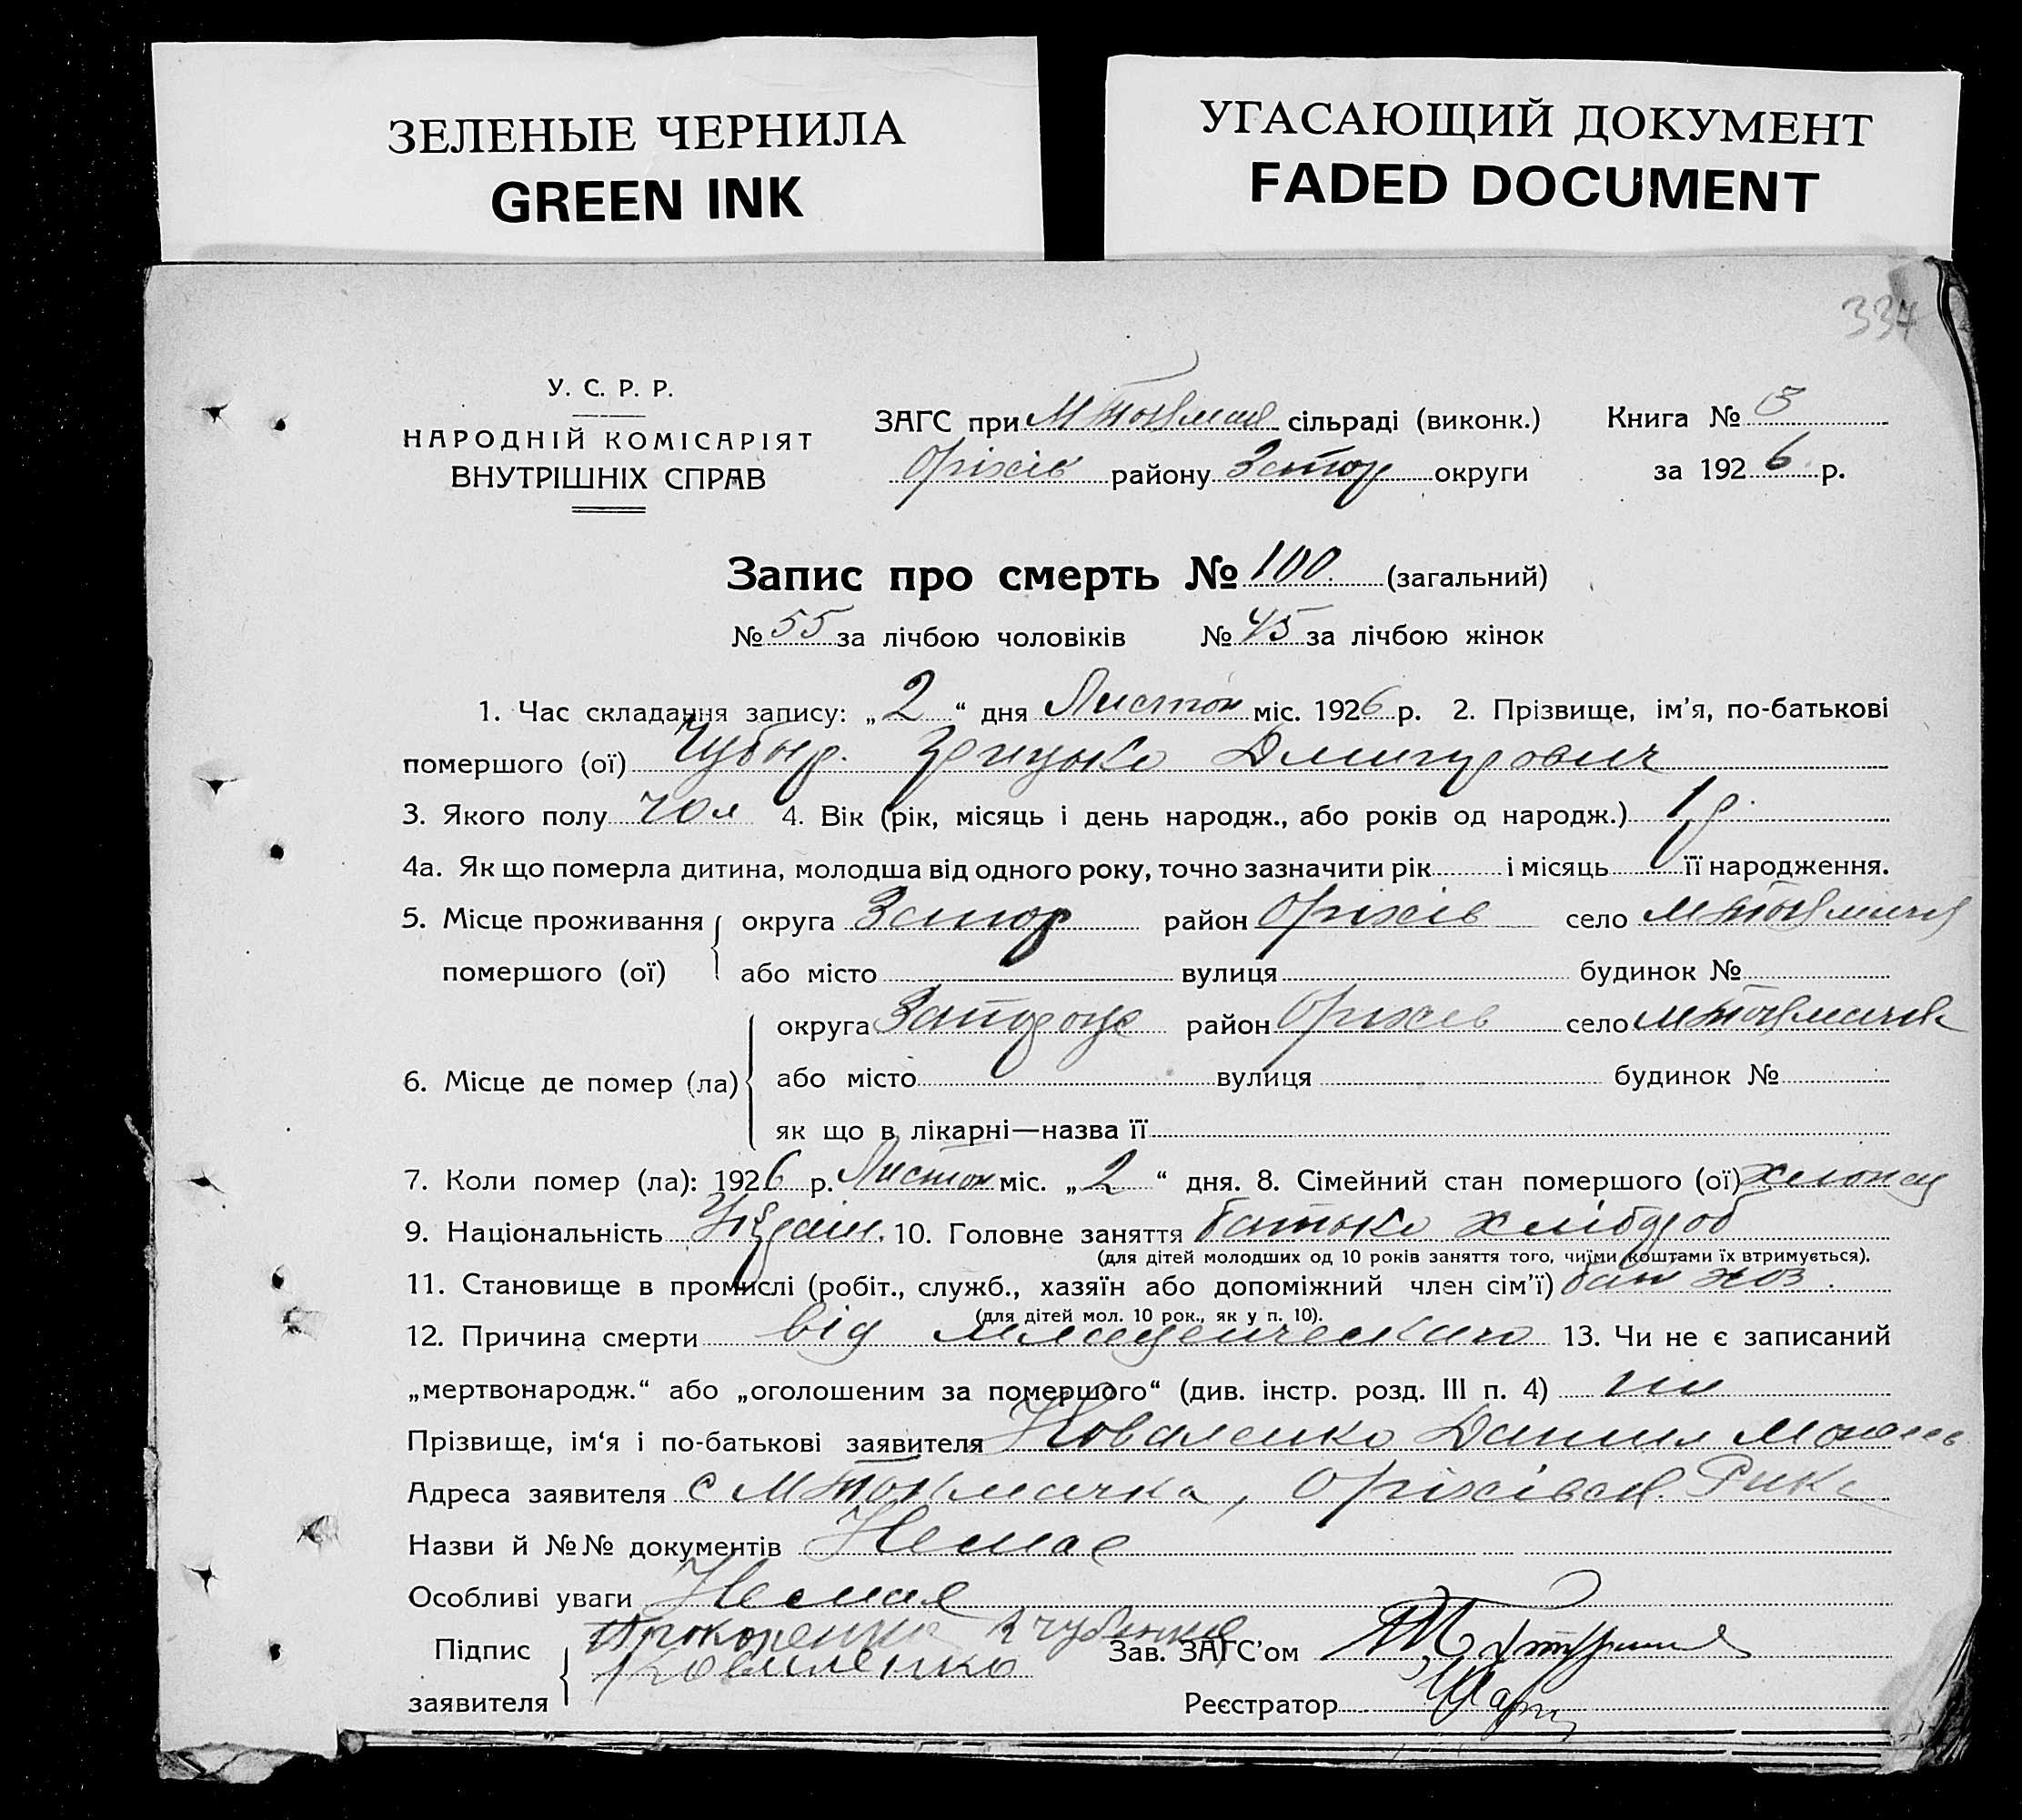 ЗЕЛЕНЫЕ ЧЕРНИЛА
GREEN INK
УГАСАЮЩИЙ ДОКУМЕНТ
FADED DOCUMENT
334
У. С. Р. Р.
НАРОДНІЙ КОМІСАРІЯТ
ВНУТРІШНІХ СПРАВ
ЗАГС при М Токмац сільраді (виконк.) Книга №
Оріхів району Запор округи за 1926 р.
Запис про смерть № 100 (загальний)
№ 55 за лічбою чоловіків № 45 за лічбою жінок
1. Час складання запису: „2“ дня Листоп міс. 1926 р. 2. Прізвище, ім'я, по-батькові
помершого (ої) Грицько Дмитрович
3. Якого полу чол 4. Вік (рік, місяць і день народж., або років од народж.) 1 р.
4а. Як що померла дитина, молодша від одного року, точно зазначити рік і місяць її народження.
5. Місце проживання помершого (ої) округа Запор район Оріхів село М Токмачц
або місто вулиця будинок №
6. Місце де помер (ла) округа Запорож район Оріхів село М Токмачк
або місто вулиця будинок №
як що в лікарні—назва її
7. Коли помер (ла): 1926 р. Листоп міс. „2“ дня. 8. Сімейний стан помершого (ої) хлопец
9. Національність Україн. 10. Головне заняття батько хлібороб
(для дітей молодших од 10 років заняття того, чиїми коштами їх втримується).
11. Становище в промислі (робіт., служб., хазяїн або допоміжний член сім'ї) бат хоз.
(для дітей мол. 10 рок., як у п. 10).
12. Причина смерти від младенческаго 13. Чи не є записаний
„мертвонародж.“ або „оголошеним за помершого“ (див. інстр. розд. III п. 4) ні
Прізвище, ім'я і по-батькові заявителя Коваленко Данил
Адреса заявителя с М Токмачка, Оріхівськ. Рика
Назви й №№ документів Немає
Особливі уваги Немає
Підпис заявителя Коваленко
Зав. ЗАГС'ом
Реєстратор